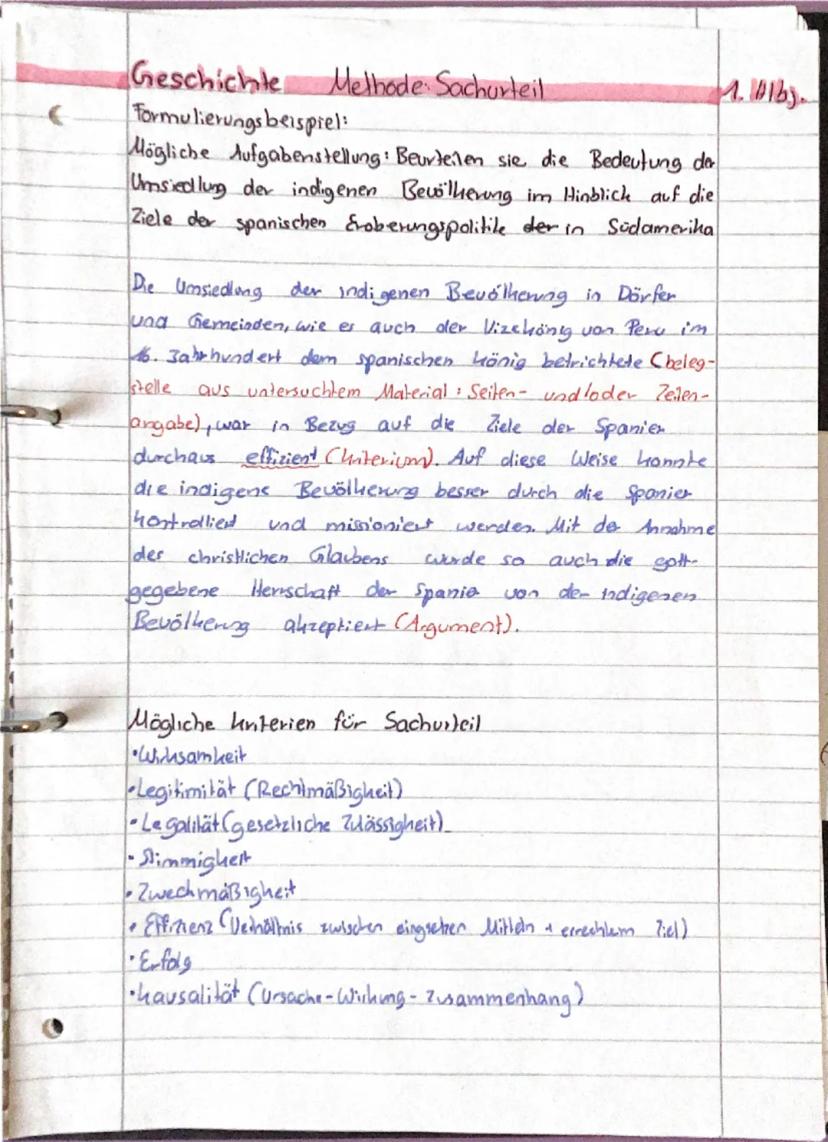 Geschichte Methode: Sachurteil 1. Hlbj.
Formulierungsbeispiel:
Mögliche Aufgabenstellung: Beurteilen sie die Bedeutung der
Umsiedlung der indigenen Bevölkerung im Hinblick auf die
Ziele der spanischen Eroberungspolitik der in Südamerika
Die Umsiedlung der indigenen Bevölkerung in Dörfer
und Gemeinden, wie es auch der Vizekönig von Peru im
16. Jahrhundert dem spanischen König betrichtete (beleg-
stelle aus untersuchtem Material: Seiten- und/oder Zeilen-
angabe), war in Bezug auf die Ziele der Spanier
durchaus effizient (Kriterium). Auf diese Weise konnte
die indigene Bevölkerung besser durch die Spanier
kontrolliert und missioniert werden. Mit der Annahme
des christlichen Glaubens wurde so auch die gott-
gegebene Herrschaft der Spanier von der indigenen
Bevölkerung akzeptiert (Argument).
Mögliche Kriterien für Sachurteil
•Wirksamkeit
•Legitimität (Rechtmäßigkeit)
•Legalität (gesetzliche Zulässigkeit)
•Stimmigkeit
•Zweckmäßigkeit
•Effizienz (Verhältnis zwischen eingsetzen Mitteln + erreichtem Ziel)
•Erfolg
•Kausalität (Ursache-Wirkung-Zusammenhang)